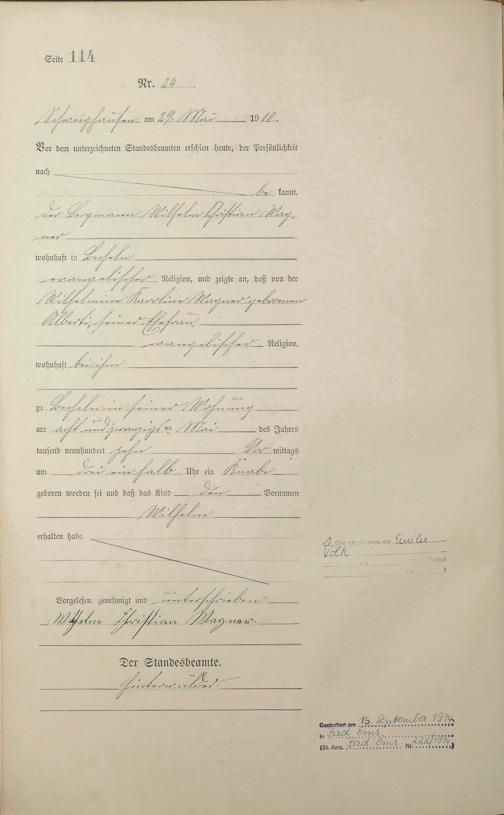 Seite 114
Nr. 24
Schweighausen am 29. Mai 1910.
Vor dem unterzeichneten Standesbeamten erschien heute, der Persönlichkeit
nach
be kannt,
der Bergmann Wilhelm Christian Wag-
ner
wohnhaft in Becheln
evangelischer Religion, und zeigte an, daß von der
Wilhelmine Karoline Wagner geborenen
Alberti, seiner Ehefrau,
evangelischer Religion,
wohnhaft bei ihm
zu Becheln in seiner Wohnung
am acht und zwanzigsten Mai des Jahres
tausend neunhundert zehn Vor mittags
um drei ein halb Uhr ein Knabe
geboren worden sei und daß das Kind den Vornamen
Wilhelm
erhalten habe.
Vorgelesen, genehmigt und unterschrieben
Wilhelm Christian Wagner.
Der Standesbeamte.
Hinterwälder.
Emilie
Volk
Gestorben am 15. September
in Bad Ems
(St. Amt. Bad Ems Nr.